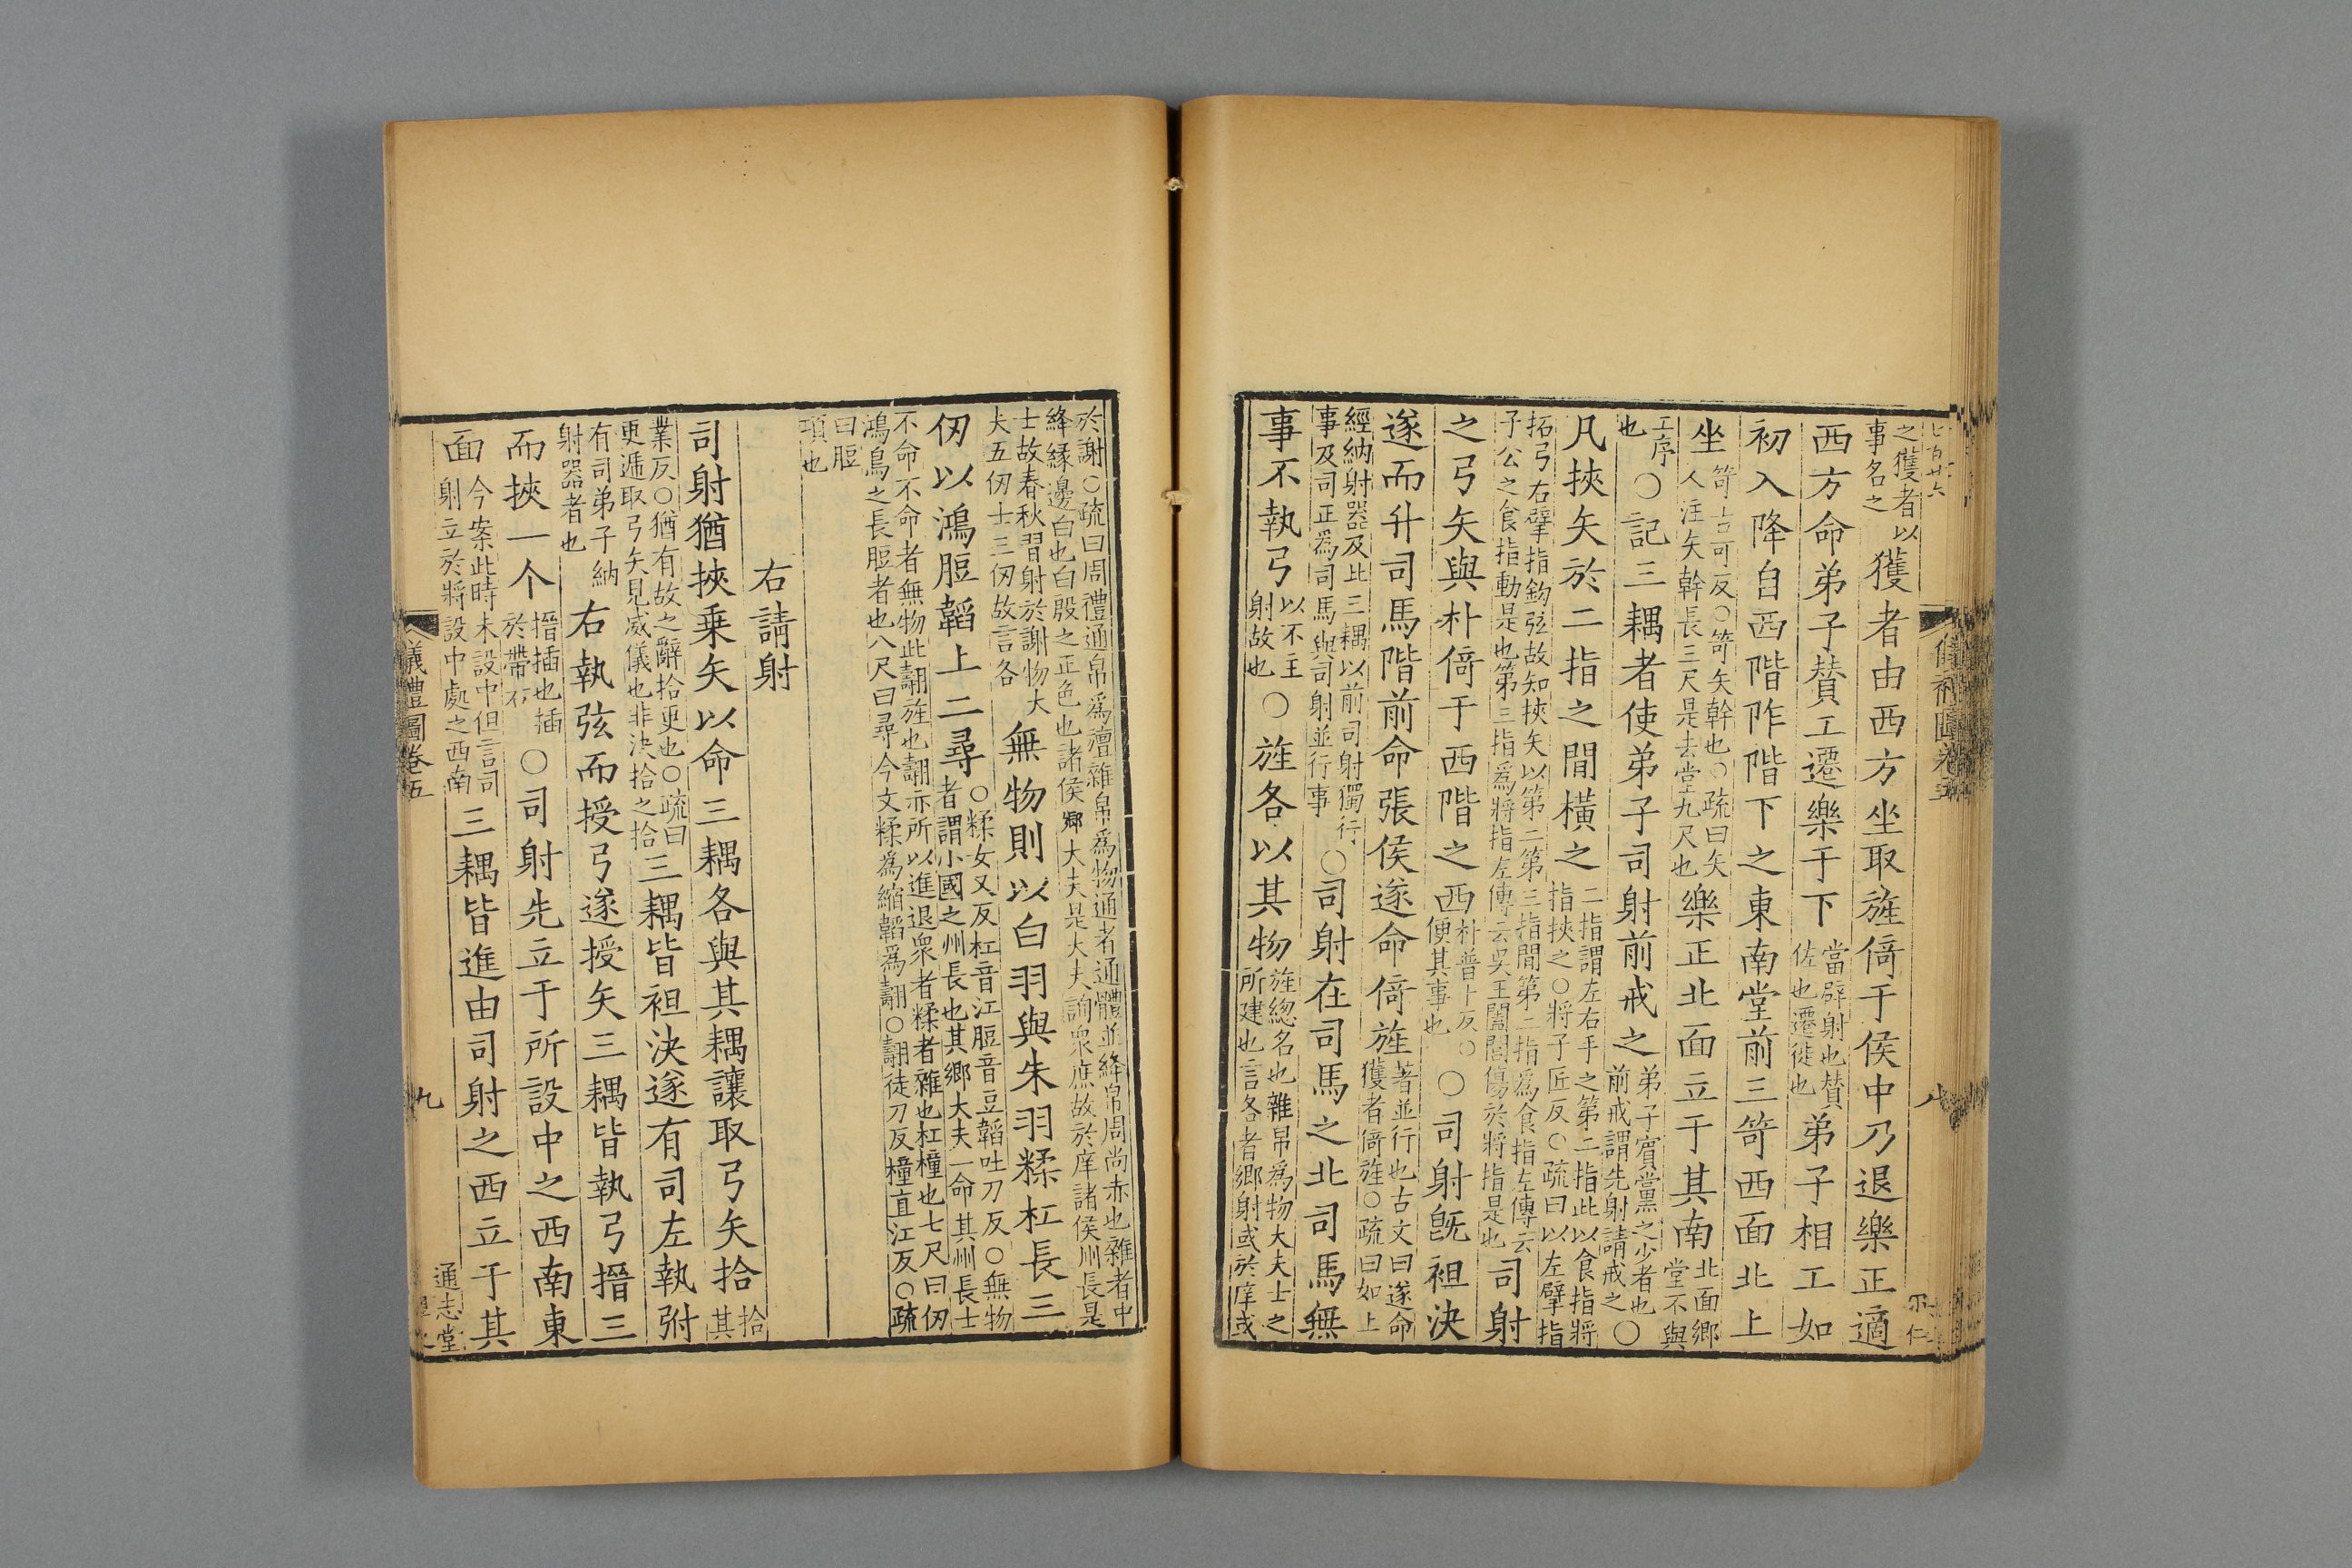 七百廿六
儀禮圖卷五
八
之獲者以
事名之
獲者由西方坐取旌倚于侯中乃退樂正適
西方命弟子賛工遷樂于下
當辟射也賛
佐也遷徙也
弟子相工如
初入降自西階阼階下之東南堂前三笴西面北上
坐
笴古可反○笴矢幹也○疏曰矢
人注矢幹長三尺是去堂九尺也
樂正北面立于其南
北面鄉
堂不與
工序
也
○記三耦者使弟子司射前戒之
弟子賓黨之少者也
前戒謂先射請戒之
○
凡挾矢於二指之間橫之
二指謂左右手之第二指此以食指將
指挾之○將子匠反○疏曰以左擘指
拓弓右擘指鉤弦故知挾矢以第二第三指間第二指為食指左傳云
子公之食指動是也第三指爲將指左傳云吳王闔閭傷於將指是也
司射
之弓矢與朴倚于西階之西
朴普卜反○
便其事也
○司射旣袒決
遂而升司馬階前命張侯遂命倚旌
著並行也古文曰遂命
獲者倚旌○疏曰如上
經納射器及此三耦以前司射獨行
事及司正爲司馬與司射並行事
○司射在司馬之北司馬無
事不執弓
以不主
射故也
○旌各以其物
旌緫名也雜帛爲物大夫士之
所建也言各者鄉射或於庠或
於謝○疏曰周禮通帛爲旜雜帛爲物通者通體並絳帛周尚赤也雜者中
絳緣邊白也白殷之正色也諸侯鄉大夫是大夫詢衆庶故於庠諸侯州長是
士故春秋習射於謝物大
夫五仞士三仞故言各
無物則以白羽與朱羽糅杠長三
仞以鴻脰韜上二尋
○糅女又反杠音江脰音豆韜吐刀反○無物
者謂小國之州長也其鄉大夫一命其州長士
不命不命者無物此翿旌也翿亦所以進退衆者糅者雜也杠橦也七尺曰仞
鴻鳥之長脰者也八尺曰尋今文糅爲縮韜爲翿○翿徒刀反橦直江反○疏
曰脰
項也
右請射
司射猶挾乗矢以命三耦各與其耦讓取弓矢拾
拾
其
業反○猶有故之辭拾更也○疏曰
更遞取弓矢見威儀也非決拾之拾
三耦皆袒決遂有司左執弣
有司弟子納
射器者也
右執弦而授弓遂授矢三耦皆執弓搢三
而挾一个
搢插也插
於帶右
○司射先立于所設中之西南東
面
今案此時未設中但言司
射立於將設中處之西南
三耦皆進由司射之西立于其
儀禮圖卷五
九
通志堂